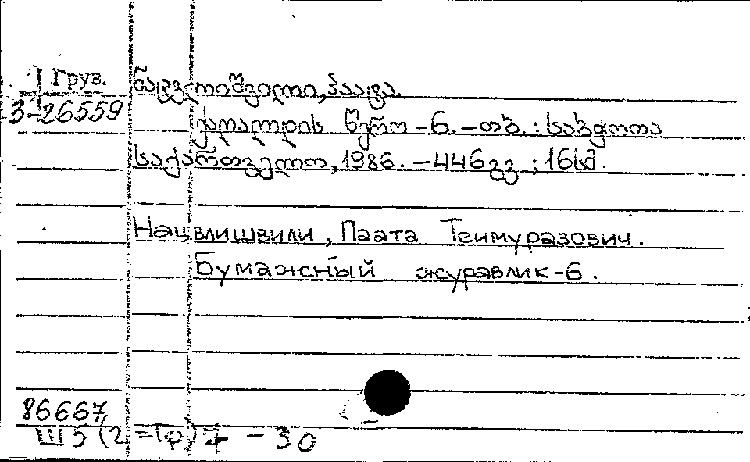 Груз.
3-26559
ნაცვლიშვილი, პაატა
ქაღალდის წერო - 6. - თბ. : საბჭოთა
საქართველო, 1986. - 446 გვ. ; 16 სმ.
Нацвлишвили, Паата Теимуразович.
Бумажный журавлик - 6.
86667
Ш5(2=Гр)7 - 30